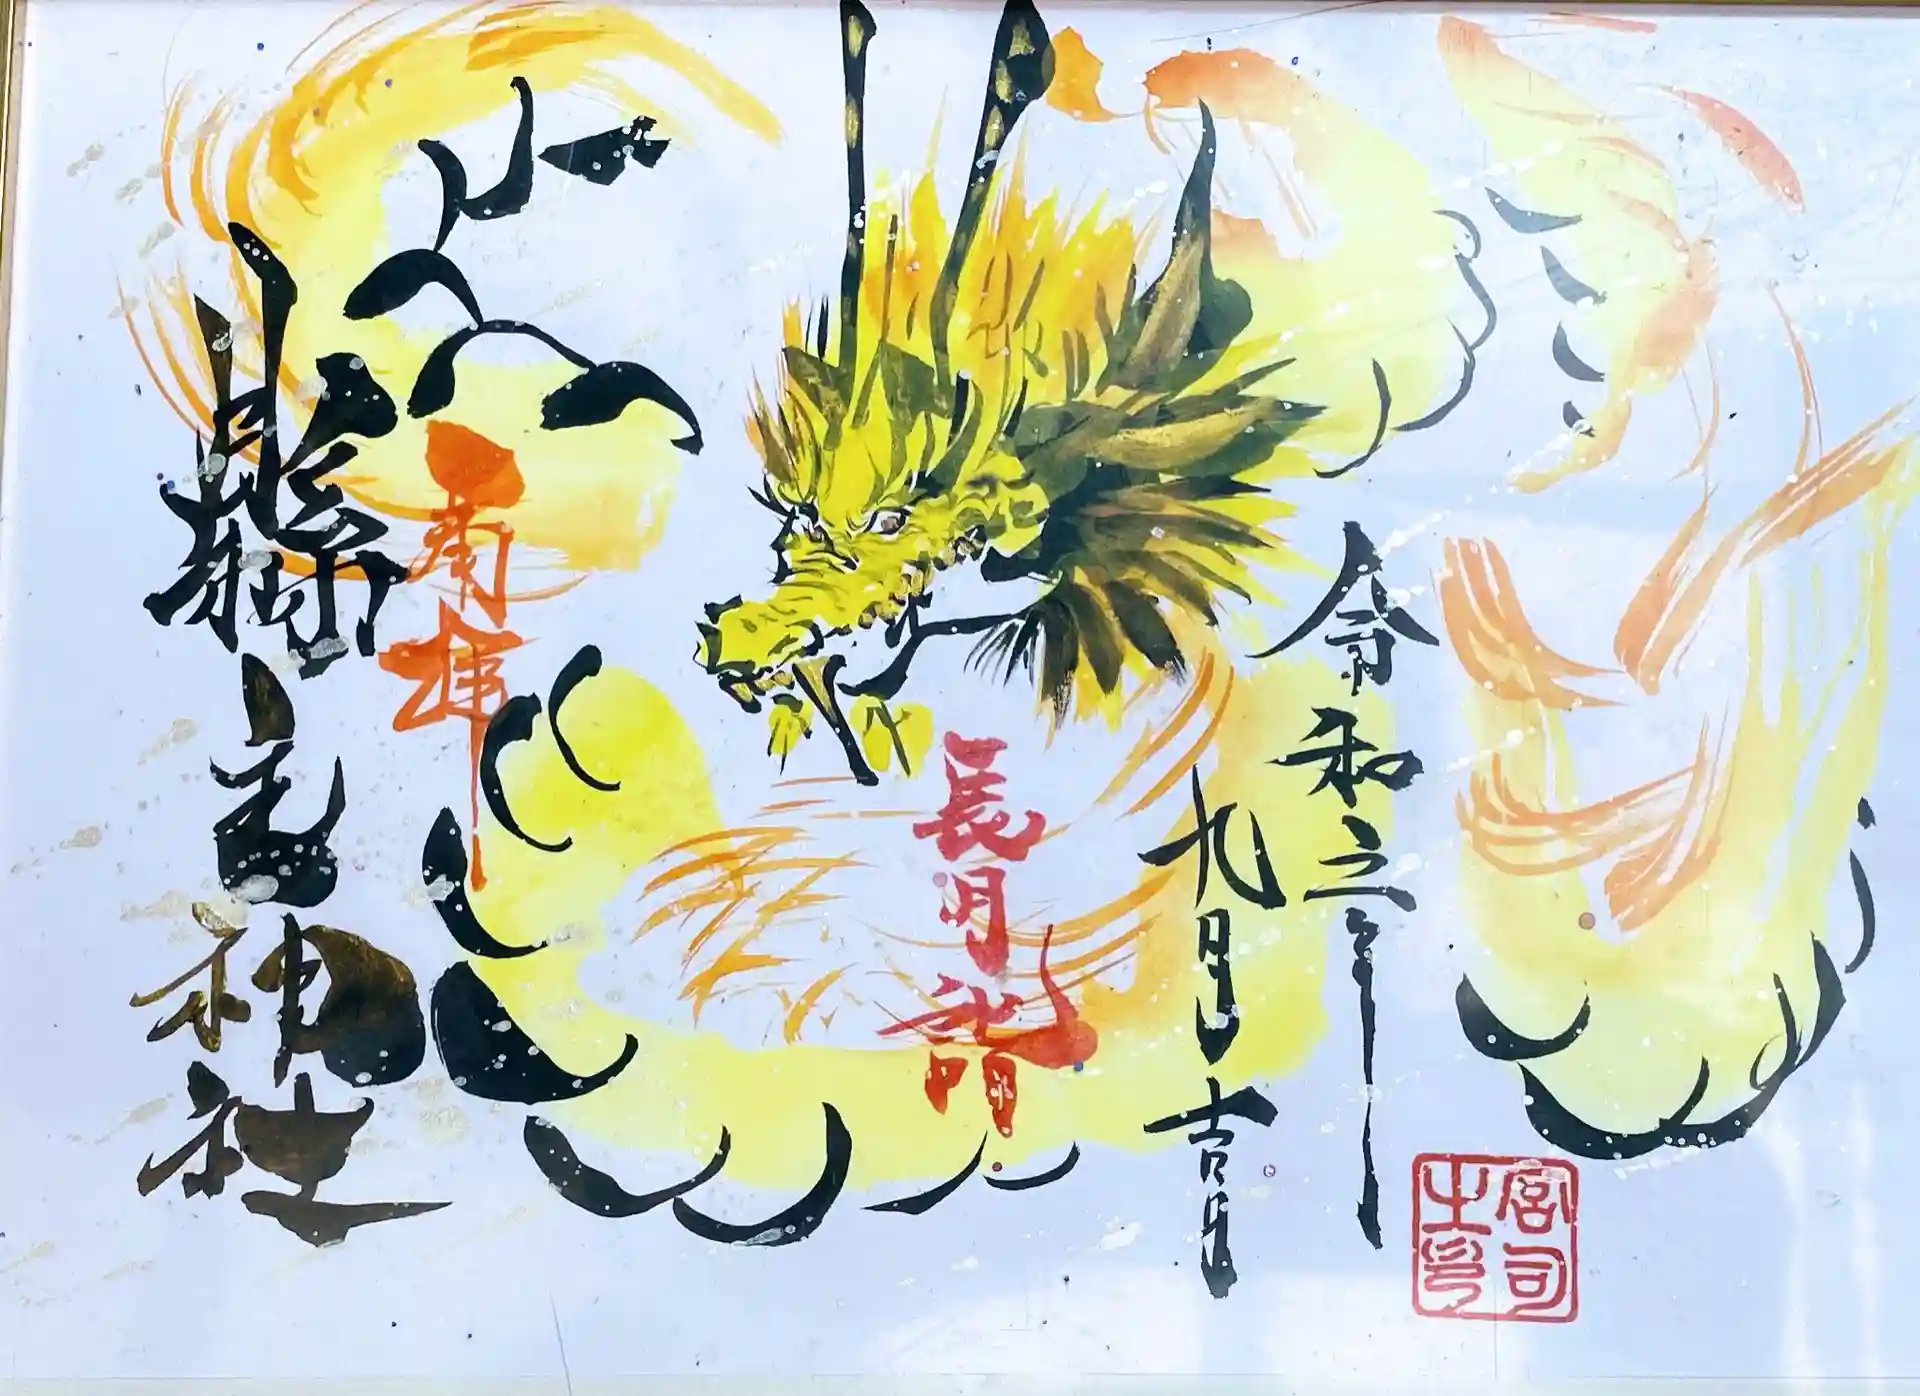 令和三年
九月吉日
長月詣
縣主神社
宮司之印